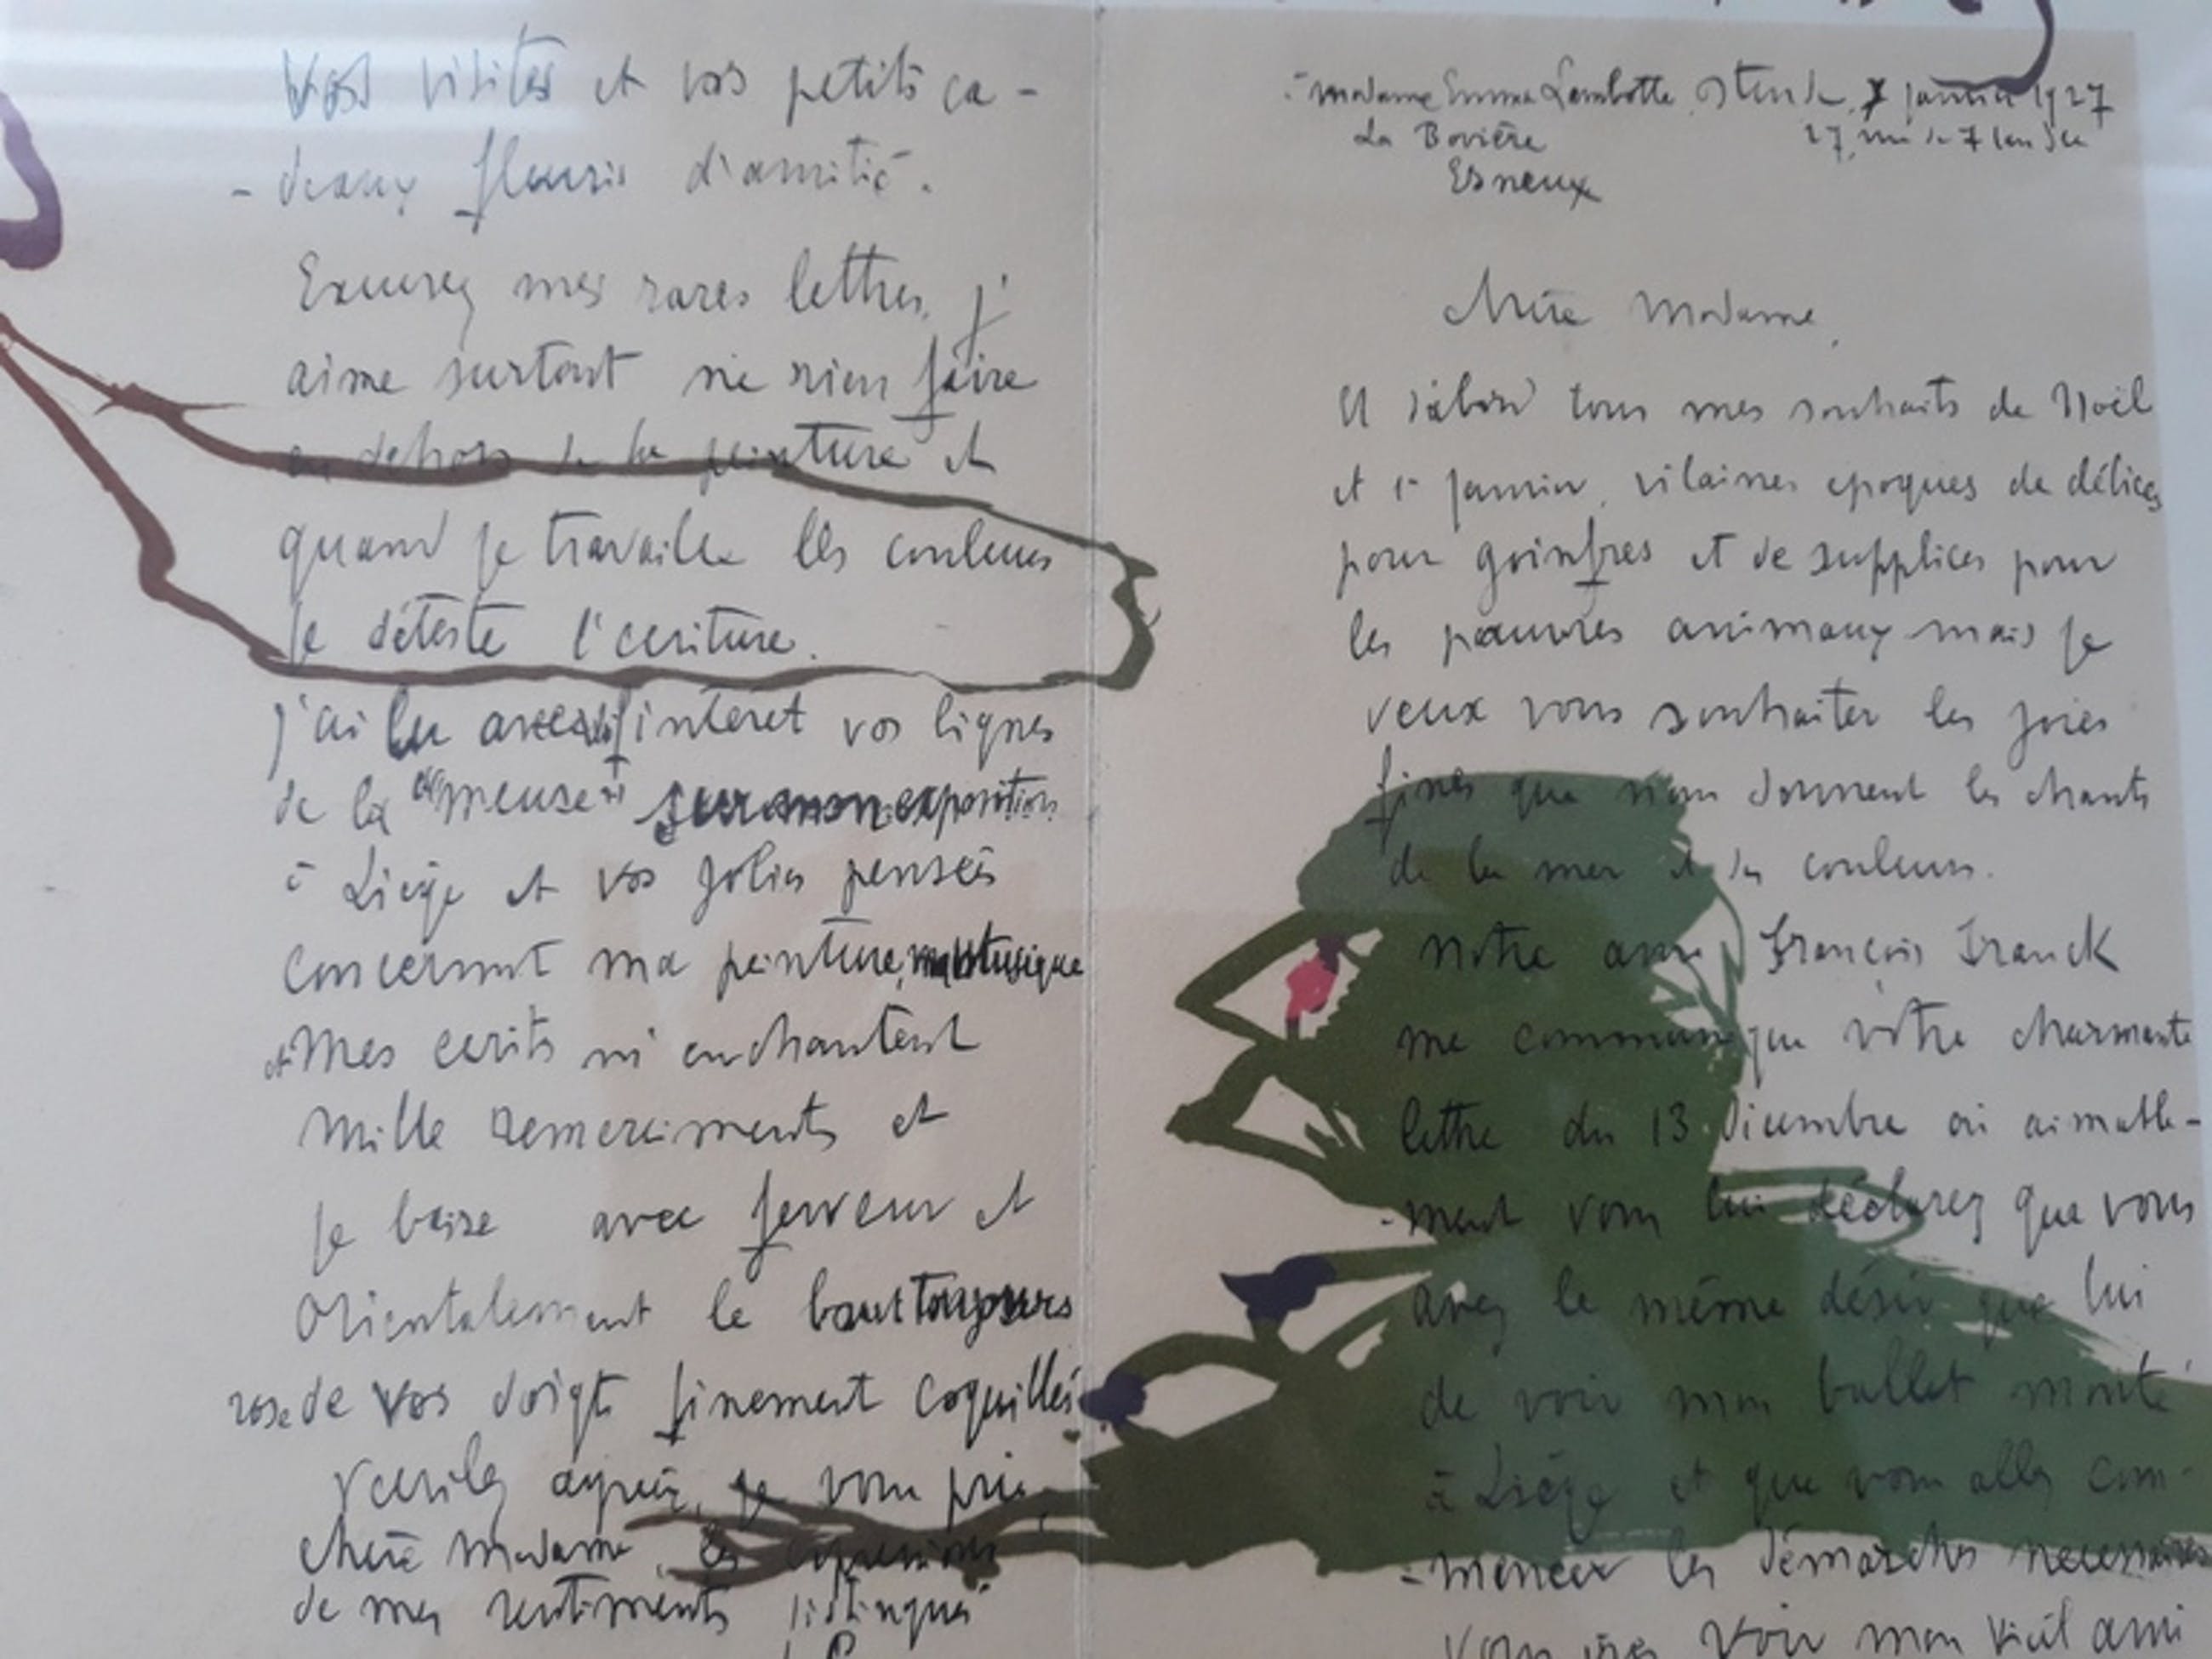 Vos visites et vos petits ca-
-deaux fleuris d'amitié.
Excusez mes rares lettres, j'
aime surtout ne rien faire
en dehors de la peinture et
quand je travaille les couleurs
je déteste l'ecriture.
j'ai lu avec interet vos lignes
de la "meuse" sur mon exposition
à Liège et vos jolies pensées
concernant ma peinture, ma musique
et mes ecrits m'enchantent
Mille remerciments et
je baise avec ferveur et
Orientalement le bout toujours
rose de vos doigts finement coquillés
Veuillez agréer, je vous prie,
chère madame, les expressions
de mes sentiments distingués
à madame Emma Lambotte Ostende, 7 janvier 1927
La Bovière 27, rue de Flandre
Esneux
Chère Madame,
Et d'abord tous mes souhaits de Noël
et 1r janvier, vilaines epoques de délices
pour goinfres et de supplices pour
les pauvres animaux mais je
veux vous souhaiter les joies
fines que nous donnent les chants
de la mer et des couleurs.
Notre ami François Franck
me communique votre charmante
lettre du 13 Décembre où aimable-
-ment vous lui déclarez que vous
avez le même désir que lui
de voir mon ballet monté
à Liège et que vous allez com-
-mencer les démarches necessaires
Vous irez voir mon vieil ami